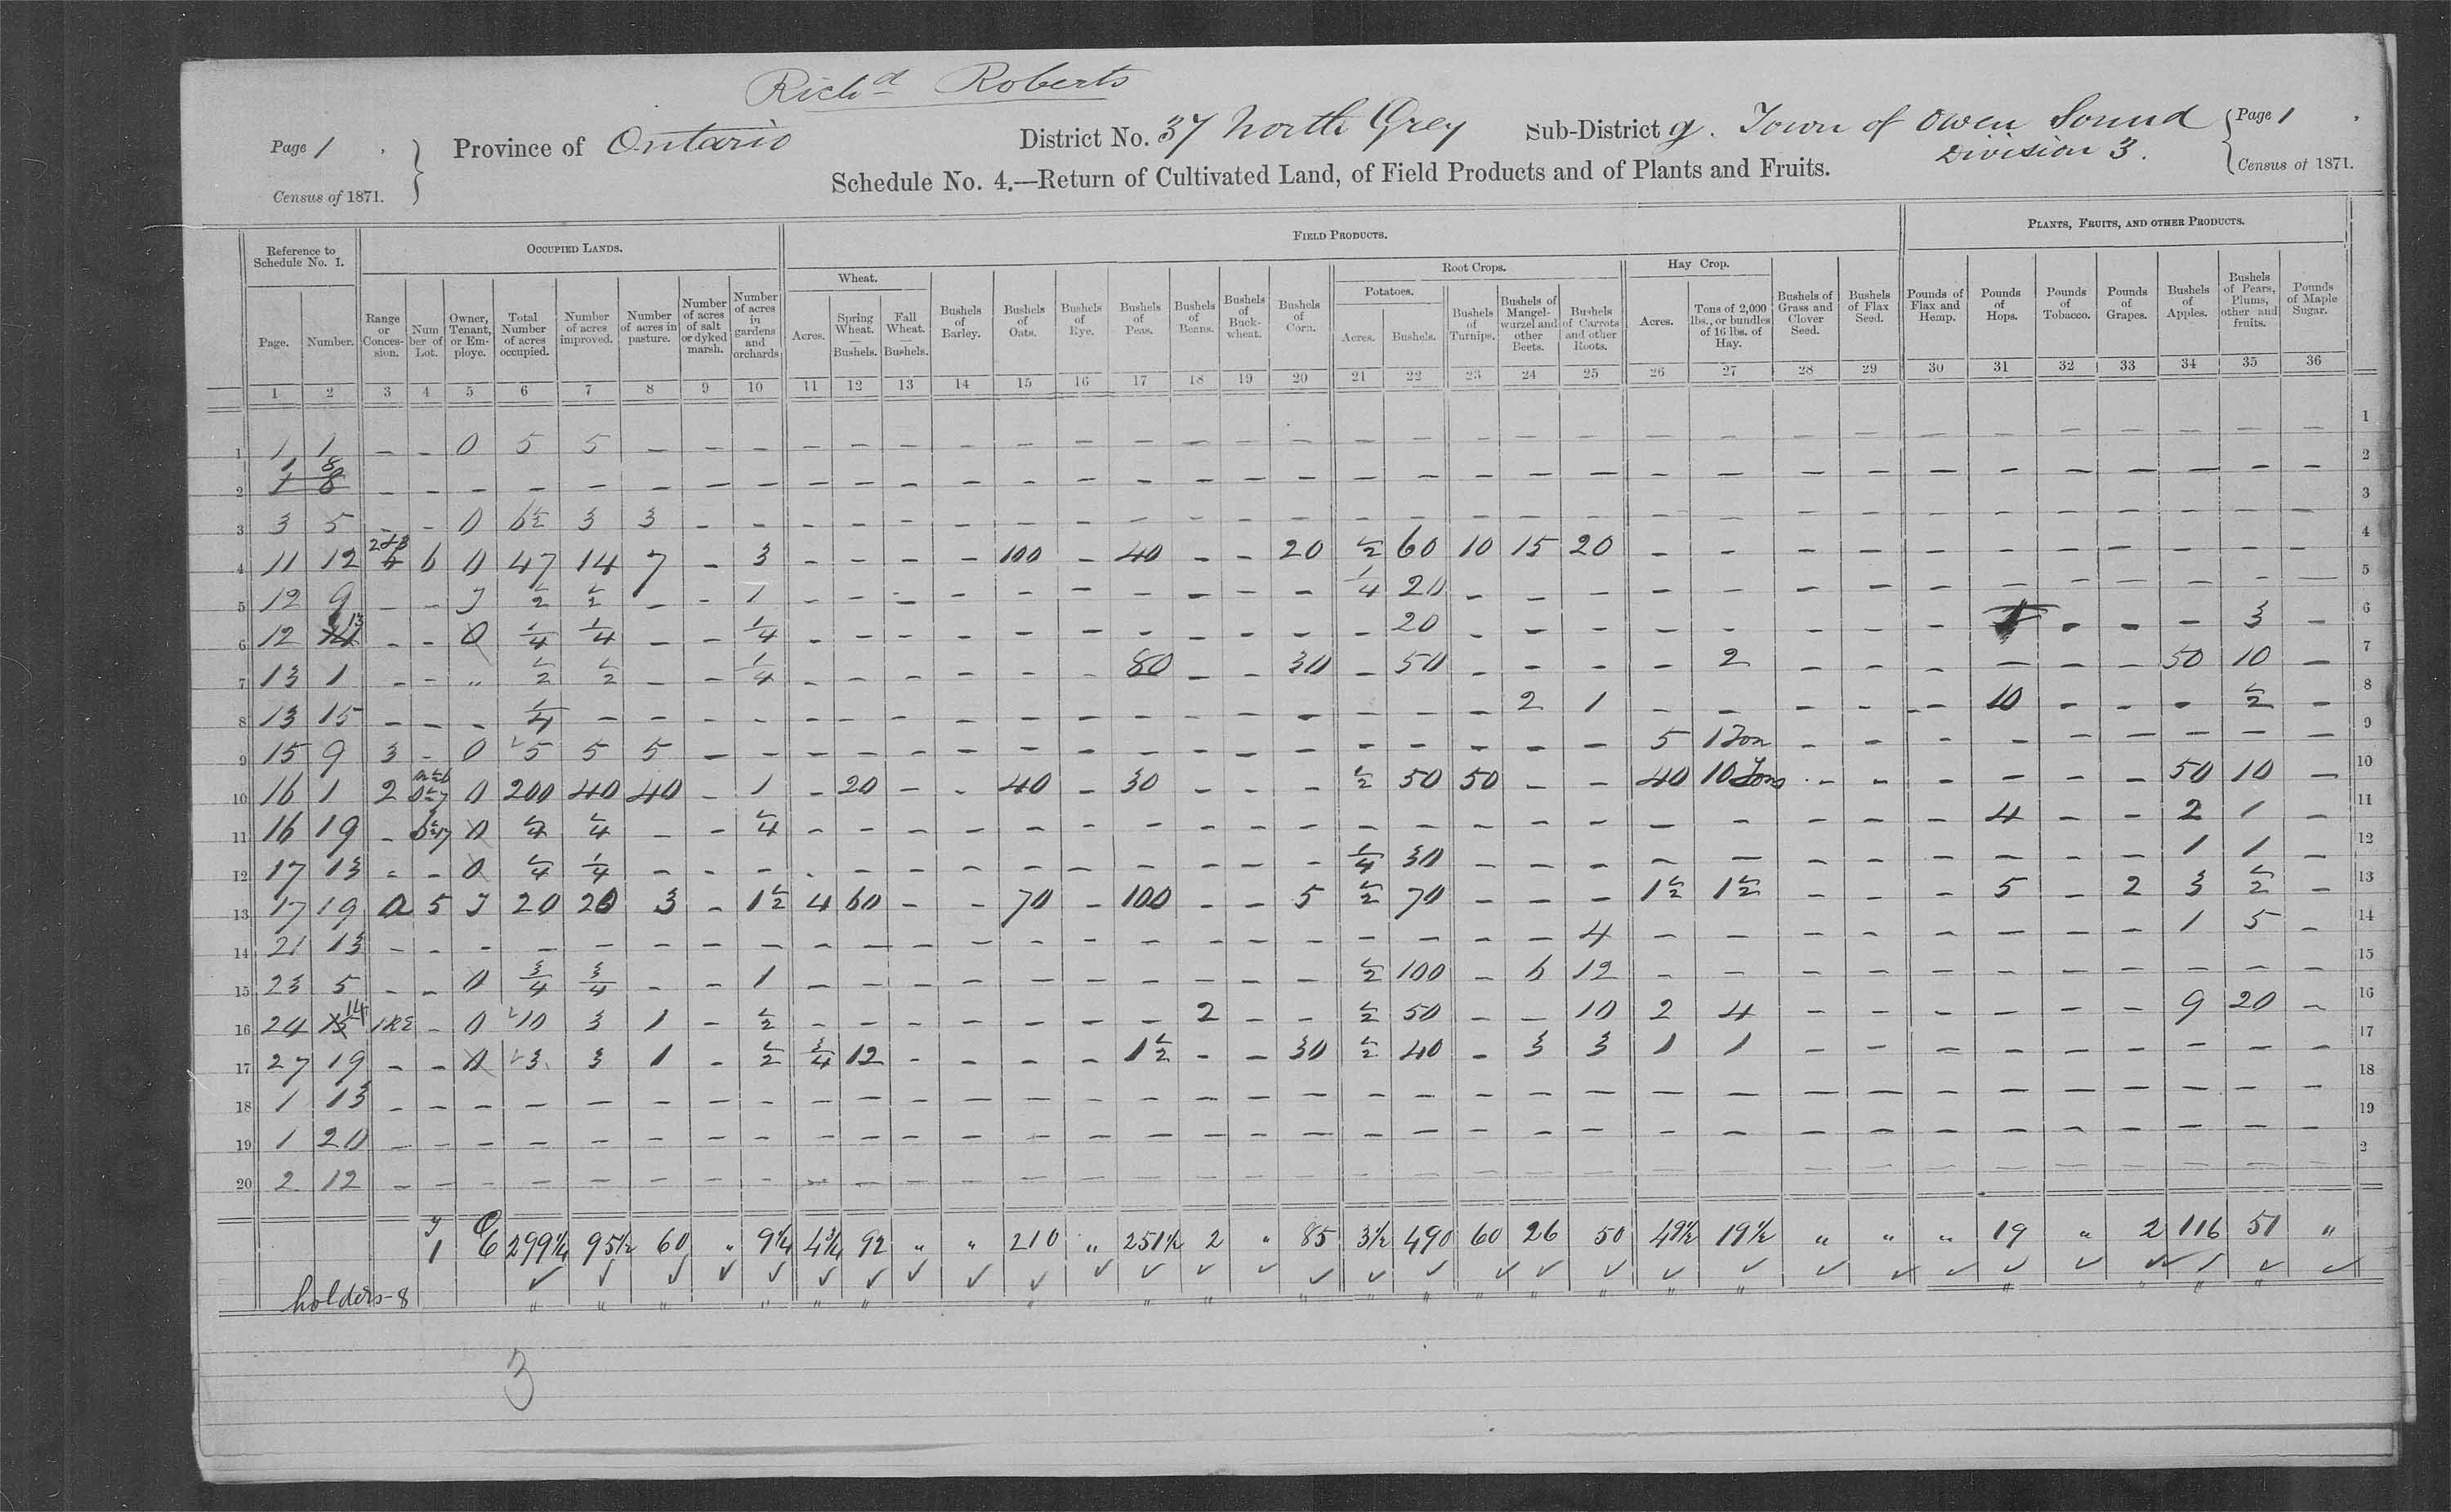 Richd Roberts
Page 1 Province of Ontario District No. 37 North Grey Sub-District g. Town of Owen Sound Page 1
Division 3.
Census of 1871. Schedule No. 4.—Return of Cultivated Land, of Field Products and of Plants and Fruits. Census of 1871.
Reference to Schedule No. 1. OCCUPIED LANDS. FIELD PRODUCTS. PLANTS, FRUITS, AND OTHER PRODUCTS.
Wheat. Root Crops. Hay Crop.
Potatoes.
Page. Number. Range or Concession. Number of Lot. Owner, Tenant, or Employe. Total Number of acres occupied. Number of acres improved. Number of acres in pasture. Number of acres of salt or dyked marsh. Number of acres in gardens and orchards Acres. Spring Wheat. — Bushels. Fall Wheat. — Bushels. Bushels of Barley. Bushels of Oats. Bushels of Rye. Bushels of Peas. Bushels of Beans. Bushels of Buck-wheat. Bushels of Corn. Acres. Bushels. Bushels of Turnips. Bushels of Mangel-wurzel and other Beets. Bushels of Carrots and other Roots. Acres. Tons of 2,000 lbs., or bundles of 16 lbs. of Hay. Bushels of Grass and Clover Seed. Bushels of Flax Seed. Pounds of Flax and Hemp. Pounds of Hops. Pounds of Tobacco. Pounds of Grapes. Bushels of Apples. Bushels of Pears, Plums, other and fruits. Pounds of Maple Sugar.
1 2 3 4 5 6 7 8 9 10 11 12 13 14 15 16 17 18 19 20 21 22 23 24 25 26 27 28 29 30 31 32 33 34 35 36
1 1 1 — — O 5 5 — — — — — — — — — — — — — — — — — — — — — — — — — — — — — 1
2 1 8 — — — — — — — — — — — — — — — — — — — — — — — — — — — — — — — — — — 2
3 3 5 — — O 6½ 3 3 — — — — — — — — — — — — — — — — — — — — — — — — — — — — 3
4 11 12 2&3 6 O 47 14 7 — 3 — — — — 100 — 40 — — 20 ½ 60 10 15 20 — — — — — — — — — — — 4
5 12 9 — — T ½ ½ — — 1 — — — — — — — — — — ¼ 20 — — — — — — — — — — — — — — 5
6 12 13 — — O ¼ ¼ — — ¼ — — — — — — — — — — — 20 — — — — — — — — — — — — 3 — 6
7 13 1 — — " ½ ½ — — ¼ — — — — — — 80 — — 30 — 50 — — — — 2 — — — — — — 50 10 — 7
8 13 15 — — — ¼ — — — — — — — — — — — — — — — — — 2 1 — — — — — 10 — — — ½ — 8
9 15 9 3 — O 5 5 5 — — — — — — — — — — — — — — — — — 5 1 Ton — — — — — — — — — 9
10 16 1 2 O 200 40 40 — 1 — 20 — — 40 — 30 — — — ½ 50 50 — — 40 10 Tons — — — — — — 50 10 — 10
11 16 19 — O ¼ ¼ — — ¼ — — — — — — — — — — — — — — — — — — — — 4 — — 2 1 — 11
12 17 13 — — O ¼ ¼ — — — — — — — — — — — — — ¼ 30 — — — — — — — — — — — 1 1 — 12
13 17 19 A 5 T 20 20 3 — 1½ 4 60 — — 70 — 100 — — 5 ½ 70 — — — 1½ 1½ — — — 5 — 2 3 ½ — 13
14 21 13 — — — — — — — — — — — — — — — — — — — — — — 4 — — — — — — — — 1 5 — 14
15 23 5 — — O ¾ ¾ — — 1 — — — — — — — — — — ½ 100 — 6 12 — — — — — — — — — — — 15
16 24 14 1RE — O 10 3 1 — ½ — — — — — — — 2 — — ½ 50 — — 10 2 4 — — — — — — 9 20 — 16
17 27 19 — — O 3 3 1 — ½ ¾ 12 — — — — 1½ — — 30 ½ 40 — 3 3 1 1 — — — — — — — — — 17
18 1 13 — — — — — — — — — — — — — — — — — — — — — — — — — — — — — — — — — — 18
19 1 20 — — — — — — — — — — — — — — — — — — — — — — — — — — — — — — — — — — 19
20 2 12 — — — — — — — — — — — — — — — — — — — — — — — — — — — — — — — — — — 2
T 1 O 6 299¼ 95½ 60 " 9¼ 4¾ 92 " " 210 " 251½ 2 " 85 3½ 490 60 26 50 49½ 19½ " " " 19 " 2 116 51 "
holders-8
3